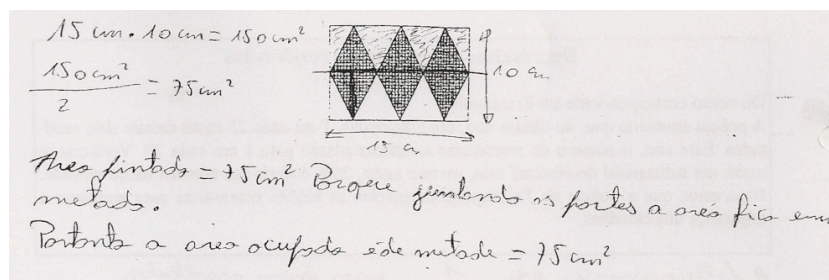 15 cm . 10 cm = 150 cm²
150 cm²
2
= 75 cm²
10 cm
15 cm
Area pintada = 75 cm² Porque juntando as partes a area fica em
metade.
Portanto a area ocupada é de metade = 75 cm²